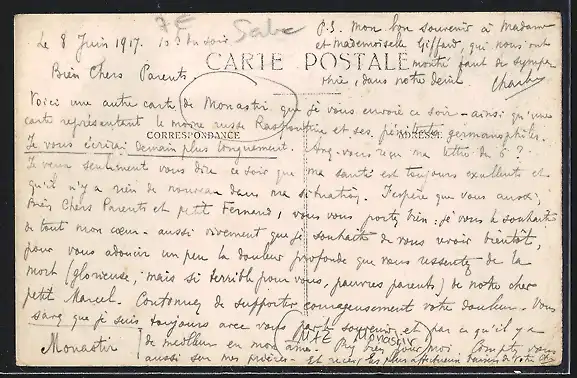 7€
Sabe
Le 8 Juin 1917. 10h du soir
P.S. Mon bon souvenir à Madame
et Mademoiselle Giffard, qui nous ont
montré tant de sympa-
thie, dans notre deuil
Charles
CARTE POSTALE
Bien Chers Parents,
Voici une autre carte de Monastir que je vous envoie ce soir - ainsi qu'une
carte représentant le moine russe Raspoutine et ses pénitentes germanophiles.
CORRESPONDANCE
ADRESSE
Je vous écrirai demain plus longuement. Avez-vous reçu ma lettre du 6 ?
Je veux seulement vous dire ce soir que ma santé est toujours excellente et
qu'il n'y a rien de nouveau dans ma situation. J'espère que vous aussi,
Bien Chers Parents et petit Fernand, vous vous portez bien : je vous le souhaite
de tout mon cœur - aussi vivement que je souhaite de vous revoir bientôt,
pour vous adoucir un peu la douleur profonde que vous ressentez de la
mort (glorieuse, mais si terrible pour vous, pauvres parents) de notre cher
petit Marcel. Continuez de supporter courageusement votre douleur. Vous
savez que je suis toujours avec vous par le souvenir et par ce qu'il y a
de meilleur en mon âme. Priez bien pour moi. Comptez vous
aussi sur mes prières - Et recevez les plus affectueux baisers de votre
Monastir
MAE Monastir